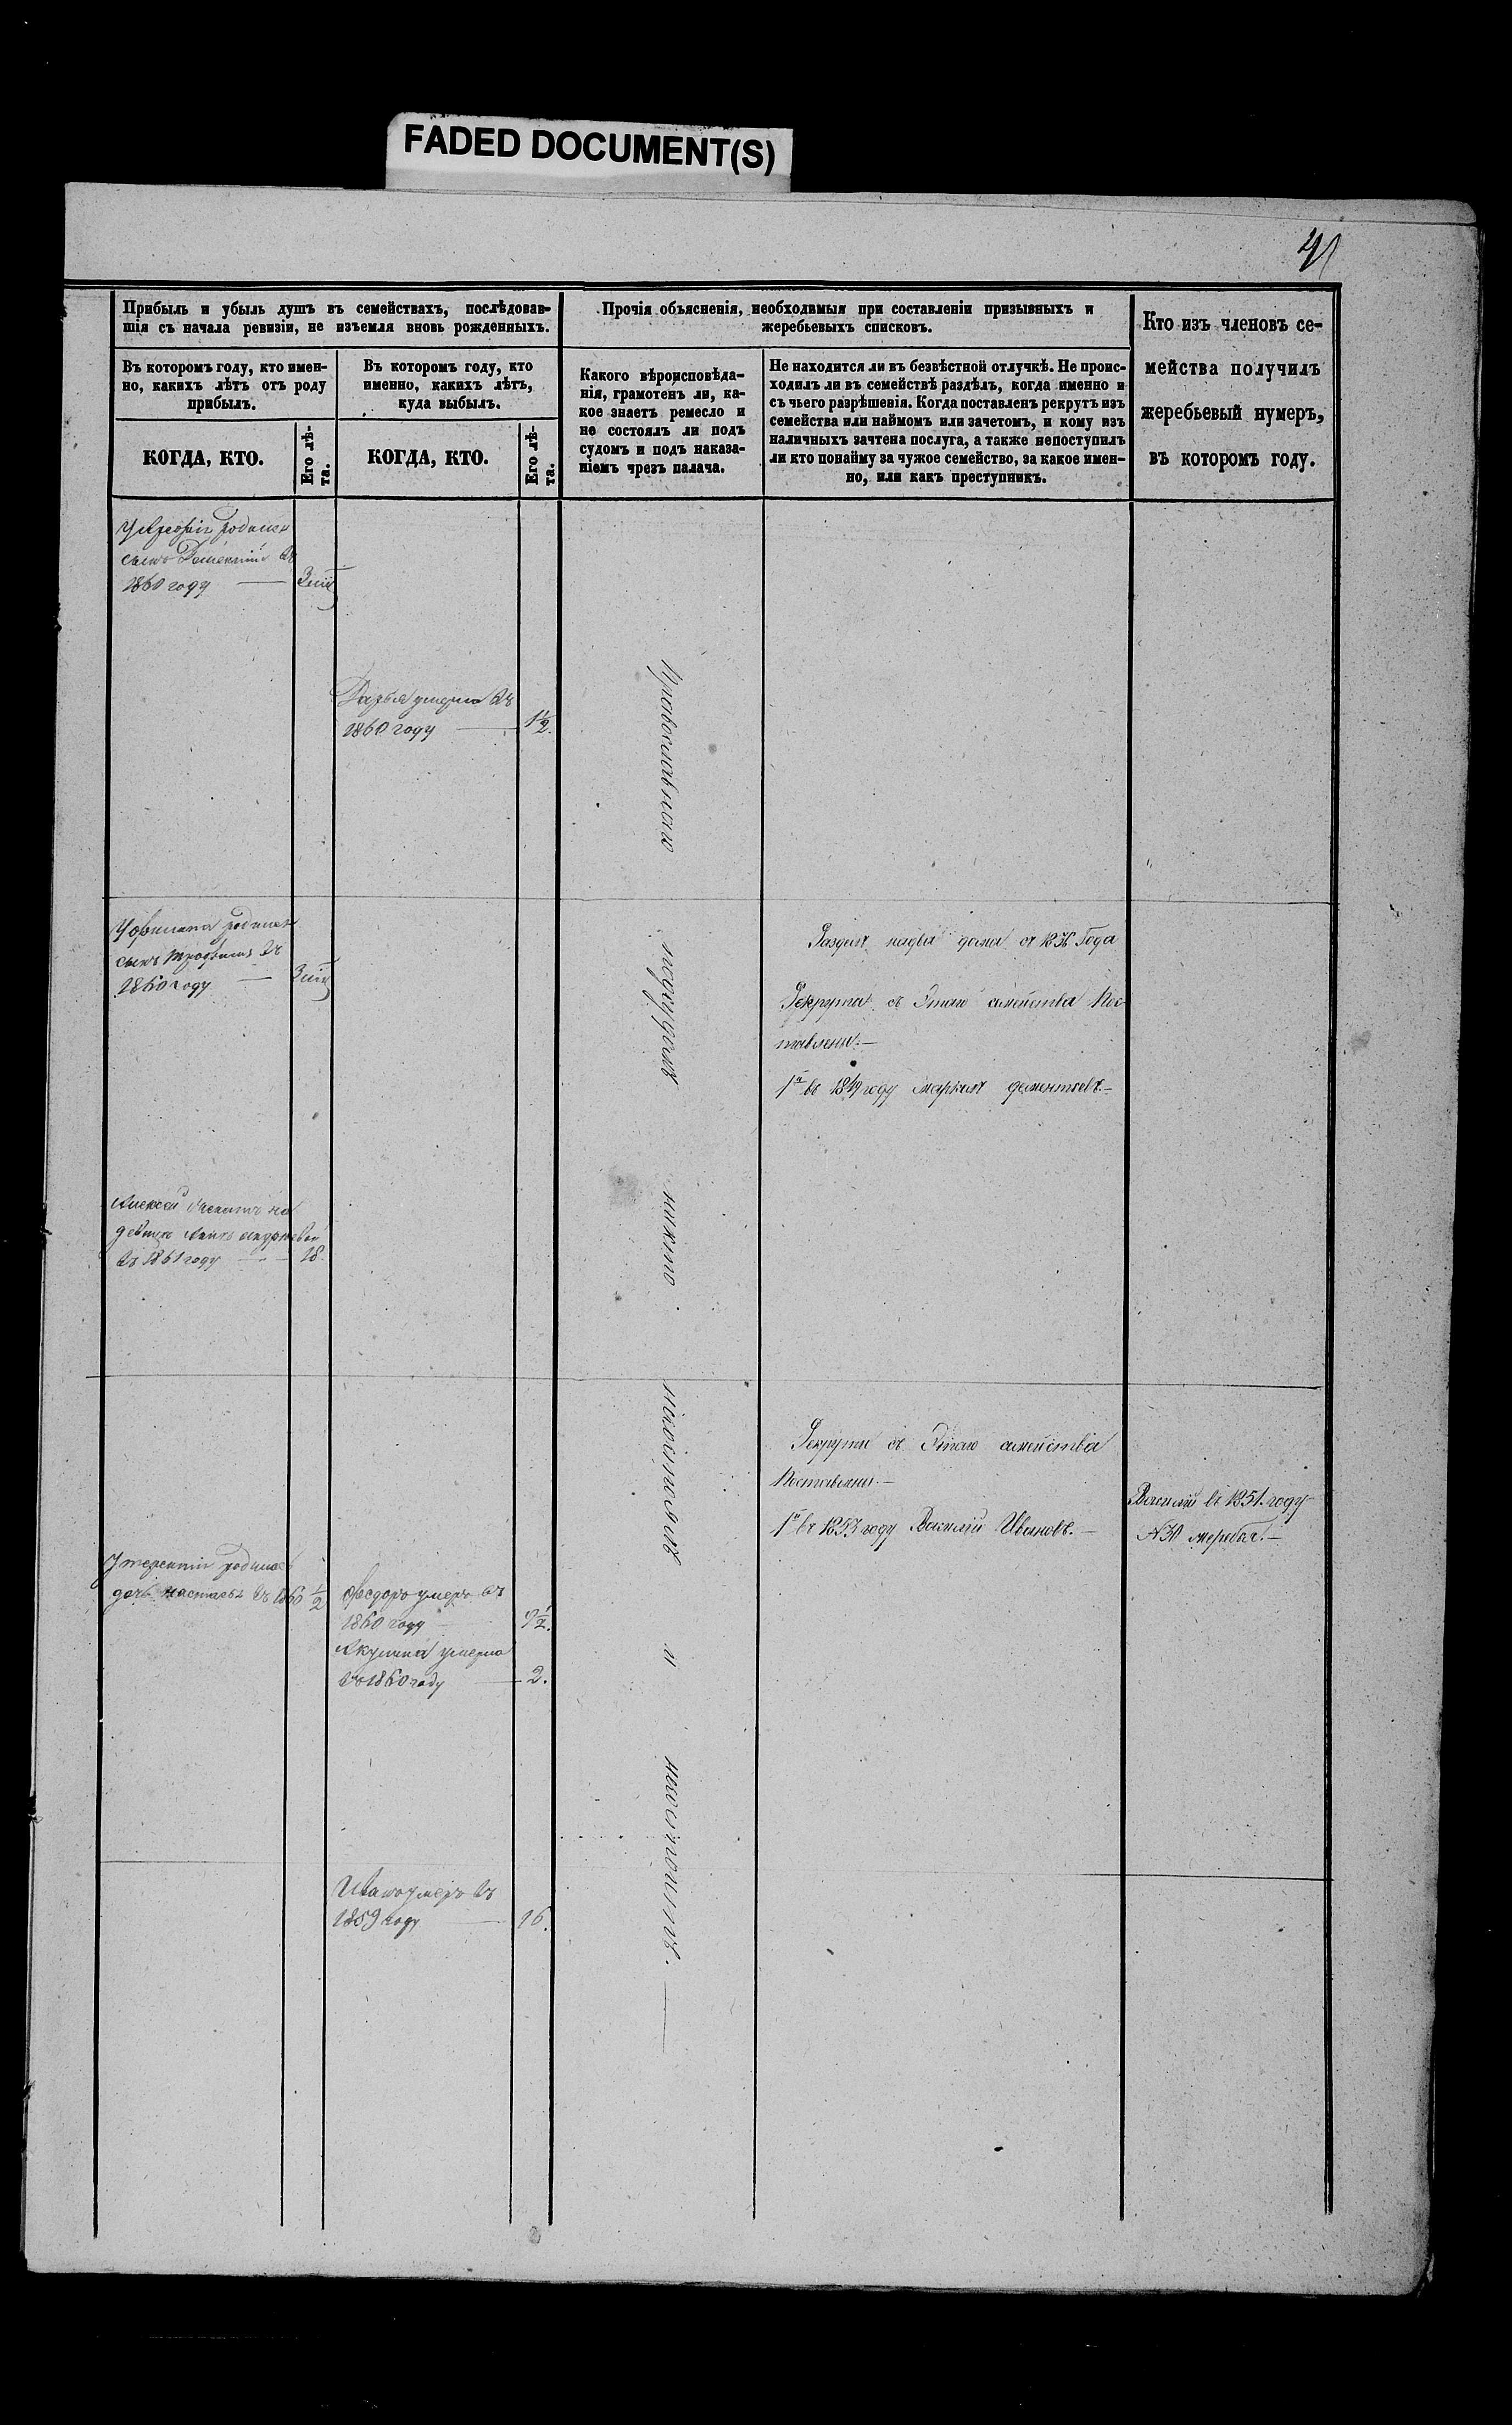 FADED DOCUMENT(S)
Прибыль и убыль душъ въ семействахъ, послѣдовав-
шія съ начала ревизіи, не изъемля вновь рожденныхъ.
Въ которомъ году, кто имен-
но, какихъ лѣтъ отъ роду
прибылъ.
КОГДА, КТО.
Его лѣ-
та.
Въ которомъ году, кто
именно, какихъ лѣтъ,
куда выбылъ.
КОГДА, КТО.
Его лѣ-
та.
Прочія объясненія, необходимыя при составленіи призывныхъ и
жеребьевыхъ списковъ.
Какого вѣроисповѣда-
нія, грамотенъ ли, ка-
кое знаетъ ремесло и
не состоялъ ли подъ
судомъ и подъ наказа-
ніемъ чрезъ палача.
Не находится ли въ безвѣстной отлучкѣ. Не проис-
ходилъ ли въ семействѣ раздѣлъ, когда именно и
съ чьего разрѣшенія. Когда поставленъ рекрутъ изъ
семейства или наймомъ или зачетомъ, и кому изъ
наличныхъ зачтена послуга, а также непоступилъ
ли кто понайму за чужое семейство, за какое имен-
но, или какъ преступникъ.
Кто изъ членовъ се-
мейства получилъ
жеребьевый нумеръ,
въ которомъ году.
сынъ въ
1860 году
Дарья умерла въ
1860 году 1½.
Православнаго
сынъ Трофимъ въ
1860 году
Раздѣлъ надва дома съ 1856 Года
Рекрута съ Этаго семейства Пос-
тавлены.—
1й въ 1849 году дементьевъ.—
подсудомъ
никто
Алексей женатъ на
въ 1861 году 18.
несостоялъ
Рекруты съ Этаго семейства
Поставлены.—
1й въ 1853 году Василій Ивановъ.—
Василій въ 1851 году
№ 30 жеребья.—
дочь настасья въ 1860 ½
Федоръ умеръ въ
1860 году 9½.
Акулина умерла
въ 1860 году 2.
и
несостоитъ.
Иванъ умеръ въ
1859 году 16.